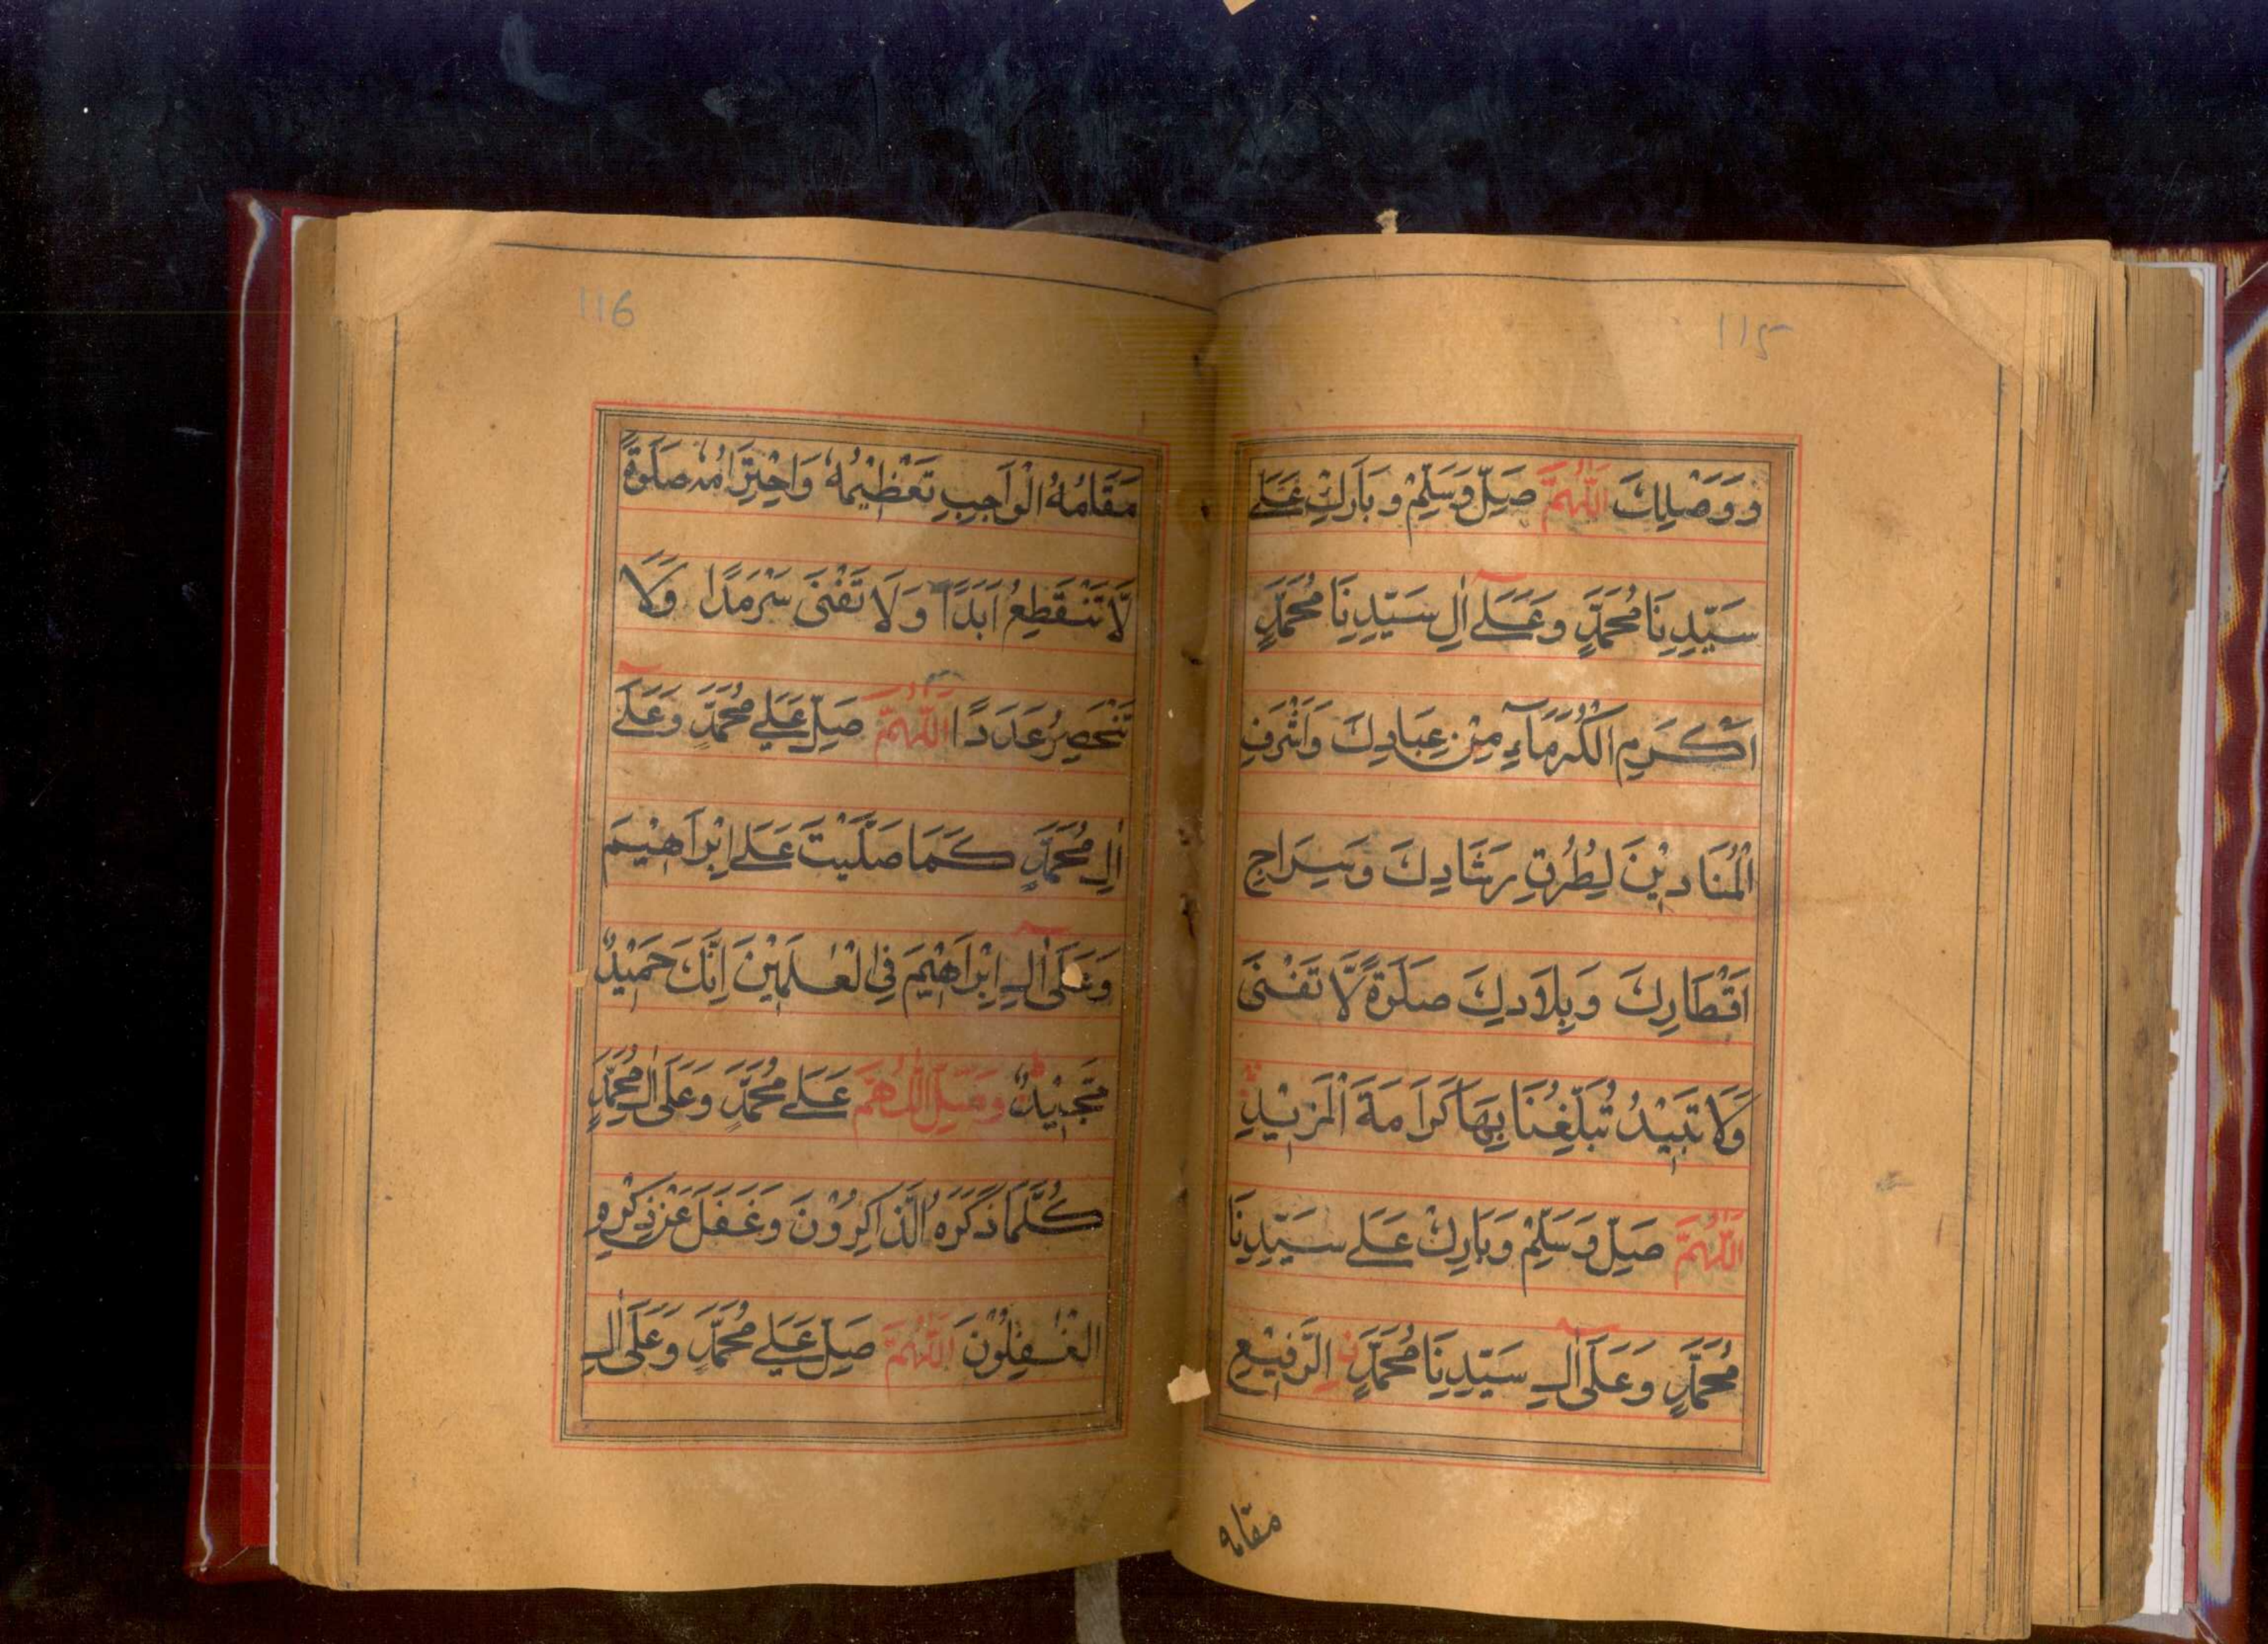 115
وَوَصْلِكَ اَللّٰهُمَّ صَلِّ وَسَلِّمْ وَبَارِكْ عَلٰے
سَيِّدِنَا مُحَمَّدٍ وَعَلٰٓے اٰلِ سَيِّدِنَا مُحَمَّدٍ
اَكْرَمِ الْكُرَمَآءِ مِنْ عِبَادِكَ وَاَشْرَفِ
الْمُنَادِيْنَ لِطُرُقِ رَشَادِكَ وَسِرَاجِ
اَقْطَارِكَ وَبِلَادِكَ صَلٰوةً لَّا تَفْنٰى
وَلَا تَبِيْدُ تُبَلِّغُنَا بِهَا كَرَامَةَ الْمَزِيْدِ
اَللّٰهُمَّ صَلِّ وَسَلِّمْ وَبَارِكْ عَلٰے سَيِّدِنَا
مُحَمَّدٍ وَعَلٰٓى اٰلِ سَيِّدِنَا مُحَمَّدٍ نِ الرَّفِيْعِ
مقامه
116
مَقَامُهُ الْوَاجِبِ تَعْظِيْمُهٗ وَاحْتِرَامُهٗ صَلٰوةً
لَّا تَنْقَطِعُ اَبَدًا وَلَا تَفْنٰى سَرْمَدًا وَلَا
تَنْحَصِرُ عَدَدًا اَللّٰهُمَّ صَلِّ عَلٰے مُحَمَّدٍ وَعَلٰٓے
اٰلِ مُحَمَّدٍ كَمَا صَلَّيْتَ عَلٰے اِبْرَاهِيْمَ
وَعَلٰٓى اٰلِ اِبْرَاهِيْمَ فِى الْعٰلَمِيْنَ اِنَّكَ حَمِيْدٌ
مَّجِيْدٌ وَصَلِّ اللّٰهُمَّ عَلٰے مُحَمَّدٍ وَعَلٰى اٰلِ مُحَمَّدٍ
كُلَّمَا ذَكَرَهُ الذَّاكِرُوْنَ وَغَفَلَ عَنْ ذِكْرِهِ
الْغٰفِلُوْنَ اَللّٰهُمَّ صَلِّ عَلٰے مُحَمَّدٍ وَعَلٰٓى اٰلِ